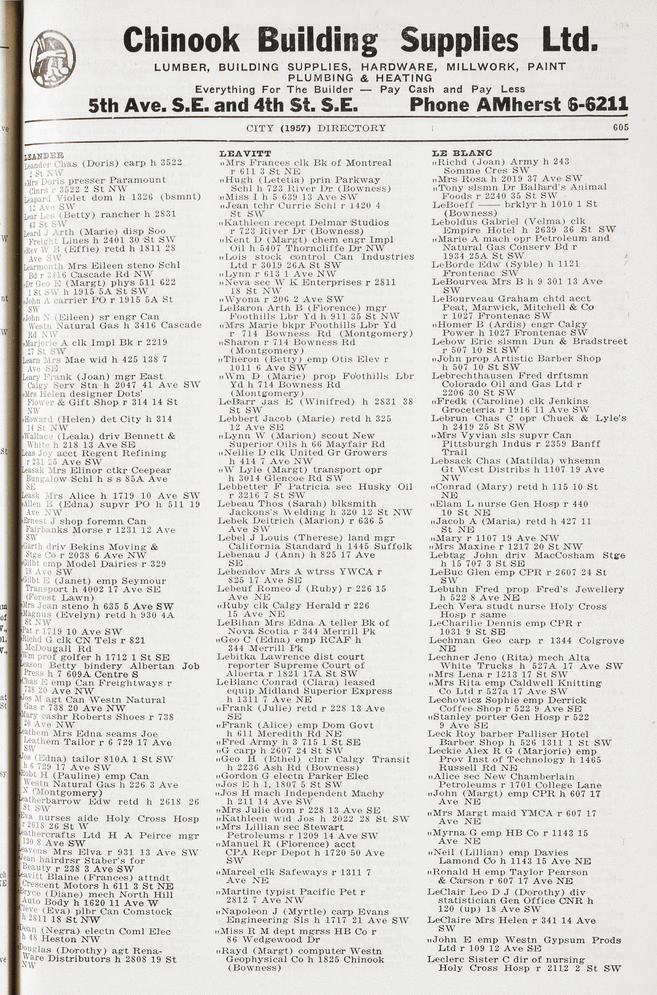 Chinook Building Supplies Ltd.
LUMBER, BUILDING SUPPLIES, HARDWARE, MILLWORK, PAINT
PLUMBING & HEATING
Everything For The Builder — Pay Cash and Pay Less
5th Ave. S.E. and 4th St. S.E. Phone AMherst 6-6211
CITY (1957) DIRECTORY 605
LEANDER
Leander Chas (Doris) carp h 3522
2 St NW
„Mrs Doris presser Paramount
Clnrs r 3522 2 St NW
Leapard Violet dom h 1326 (bsmnt)
12 Ave SW
Lear Les (Betty) rancher h 2831
41 St SW
Leard J Arth (Maria) disp Soo
Freight Lines h 2401 30 St SW
„Rev W B (Effie) retd h 1811 28
Ave SW
Learmonth Mrs Eileen steno Schl
Bd r 3416 Cascade Rd NW
„Dr Geo E (Margt) phys 511 622
1 St SW h 1915 5A St SW
„John A carrier PO r 1915 5A St
SW
„John N (Eileen) sr engr Can
Westn Natural Gas h 3416 Cascade
Rd NW
„Marjorie A clk Impl Bk r 2219
17 St SW
Learn Mrs Mae wid h 425 138 7
Ave SE
Leary Frank (Joan) mgr East
Calgy Serv Stn h 2047 41 Ave SW
„Mrs Helen designer Dots'
Flower & Gift Shop r 314 14 St
NW
„Howard (Helen) det City h 314
14 St NW
„Wallace (Leala) driv Bennett &
White h 218 13 Ave SE
Leas Joy acct Regent Refining
r 231 25 Ave SW
Leasak Mrs Elinor ctkr Ceepear
Bungalow Schl h s s 85A Ave
SE
Leask Mrs Alice h 1719 10 Ave SW
„Allen B (Edna) supvr PO h 511 19
Ave NW
„Ernest J shop foremn Can
Fairbanks Morse r 1231 12 Ave
SW
„Garth driv Bekins Moving &
Stge Co r 2038 6 Ave NW
„Gilbt emp Model Dairies r 329
18 Ave SW
„Gilbt E (Janet) emp Seymour
Transport h 4002 17 Ave SE
(Forest Lawn)
„Mrs Jean steno h 635 5 Ave SW
„Magnus (Evelyn) retd h 930 4A
St NW
„Pat r 1719 10 Ave SW
„Richd G clk CN Tels r 821
McDougall Rd
„Wm prof golfer h 1712 1 St SE
Leason Betty bindery Albertan Job
Press h 7 609A Centre S
„Chas E emp Can Freightways r
738 20 Ave NW
„Jos M agt Can Westn Natural
Gas r 738 20 Ave NW
„Mary cashr Roberts Shoes r 738
20 Ave NW
Leathem Mrs Edna seams Joe
Leathem Tailor r 6 729 17 Ave
SW
„Jos (Edna) tailor 810A 1 St SW
h 6 729 17 Ave SW
„Robt H (Pauline) emp Can
Westn Natural Gas h 226 3 Ave
N (Montgomery)
Leatherbarrow Edw retd h 2618 26
St SW
„Eva nurses aide Holy Cross Hosp
r 2618 26 St W
Leathercrafts Ltd H A Peirce mgr
130 8 Ave SW
Leavens Mrs Elva r 931 13 Ave SW
„Jean hairdrsr Staber's for
Beauty r 238 3 Ave SW
Leavitt Blaine (Frances) attndt
Crescent Motors h 611 3 St NE
„Bryce (Diane) mech North Hill
Auto Body h 1620 11 Ave W
„Cleve (Eva) plbr Can Comstock
h 2811 18 St NW
„Dean (Negra) electn Coml Elec
h 48 Heston NW
„Douglas (Dorothy) agt Rena-
Ware Distributors h 2808 19 St
NW
LEAVITT
„Mrs Frances clk Bk of Montreal
r 611 3 St NE
„Hugh (Letetia) prin Parkway
Schl h 723 River Dr (Bowness)
„Miss I h 5 639 13 Ave SW
„Jean tchr Currie Schl r 1420 4
St SW
„Kathleen recept Delmar Studios
r 723 River Dr (Bowness)
„Kent D (Margt) chem engr Impl
Oil h 5407 Thorncliffe Dr NW
„Lois stock control Can Industries
Ltd r 3019 26A St SW
„Lynn r 613 1 Ave NW
„Neva sec W K Enterprises r 2811
18 St NW
„Wyona r 206 2 Ave SW
LeBaron Arth B (Florence) mgr
Foothills Lbr Yd h 911 35 St NW
„Mrs Marie bkpr Foothills Lbr Yd
r 714 Bowness Rd (Montgomery)
„Sharon r 714 Bowness Rd
(Montgomery)
„Theron (Betty) emp Otis Elev r
1011 6 Ave SW
„Wm D (Marie) prop Foothills Lbr
Yd h 714 Bowness Rd
(Montgomery)
LeBarr Jas E (Winifred) h 2831 38
St SW
Lebbert Jacob (Marie) retd h 325
12 Ave SE
„Lynn W (Marion) scout New
Superior Oils h 66 Mayfair Rd
„Nellie D clk United Gr Growers
h 414 7 Ave NW
„W Lyle (Margt) transport opr
h 3014 Glencoe Rd SW
Lebbetter F Patricia sec Husky Oil
r 3216 7 St SW
Lebeau Thos (Sarah) blksmith
Jackons's Welding h 320 12 St NW
Lebek Deitrich (Marion) r 636 5
Ave SW
Lebel J Louis (Therese) land mgr
California Standard h 1445 Suffolk
Lebenau J (Ann) h 825 17 Ave
SE
Lebendov Mrs A wtrss YWCA r
825 17 Ave SE
Lebeuf Romeo J (Ruby) r 226 15
Ave NE
„Ruby clk Calgy Herald r 226
15 Ave NE
LeBihan Mrs Edna A teller Bk of
Nova Scotia r 344 Merrill Pk
„Geo C (Edna) emp RCAF h
344 Merrill Pk
Lebitka Lawrence dist court
reporter Supreme Court of
Alberta r 1821 17A St SW
LeBlanc Conrad (Clara) leased
equip Midland Superior Express
h 1311 7 Ave NE
„Frank (Julie) retd r 228 13 Ave
SE
„Frank (Alice) emp Dom Govt
h 611 Meredith Rd NE
„Fred Army h 3 715 1 St SE
„G carp h 2607 24 St SW
„Geo H (Ethel) clnr Calgy Transit
h 2236 Ash Rd (Bowness)
„Gordon G electn Parker Elec
„Jos E h 1, 1807 5 St SW
„Jos H mach Independent Machy
h 211 14 Ave SW
„Mrs Julie dom r 228 13 Ave SE
„Kathleen wid Jos h 2022 28 St SW
„Mrs Lillian sec Stewart
Petroleums r 1209 14 Ave SW
„Manuel R (Florence) acct
CPA Repr Depot h 1720 50 Ave
SW
„Marcel clk Safeways r 1311 7
Ave NE
„Martine typist Pacific Pet r
2812 7 Ave NW
„Napoleon J (Myrtle) carp Evans
Engineering Sls h 1717 21 Ave SW
„Miss R M dept mgrss HB Co r
86 Wedgewood Dr
„Rayd (Margt) computer Westn
Geophysical Co h 1825 Chinook
(Bowness)
LE BLANC
„Richd (Joan) Army h 243
Somme Cres SW
„Mrs Rosa h 2019 37 Ave SW
„Tony slsmn Dr Ballard's Animal
Foods r 2240 35 St SW
LeBoeff —— brklyr h 1010 1 St
(Bowness)
Leboldus Gabriel (Velma) clk
Empire Hotel h 2639 36 St SW
„Marie A mach opr Petroleum and
Natural Gas Conserv Bd r
1934 25A St SW
LeBorde Edw (Syble) h 1121
Frontenac SW
LeBourvea Mrs B h 9 301 13 Ave
SW
LeBourveau Graham chtd acct
Peat, Marwick, Mitchell & Co
r 1027 Frontenac SW
„Homer B (Ardis) engr Calgy
Power h 1027 Frontenac SW
Lebow Eric slsmn Dun & Bradstreet
r 507 10 St SW
„John prop Artistic Barber Shop
h 507 10 St SW
Lebrechthausen Fred drftsmn
Colorado Oil and Gas Ltd r
2206 30 St SW
„Fredk (Caroline) clk Jenkins
Groceteria r 1916 11 Ave SW
Lebrun Chas C opr Chuck & Lyle's
h 2419 25 St SW
„Mrs Vyvian sls supvr Can
Pittsburgh Indus r 2359 Banff
Trail
Lebsack Chas (Matilda) whsemn
Gt West Distribs h 1107 19 Ave
NW
„Conrad (Mary) retd h 115 10 St
NE
„Elam L nurse Gen Hosp r 440
10 St NE
„Jacob A (Maria) retd h 427 11
St NE
„Mary r 1107 19 Ave NW
„Mrs Maxine r 1217 20 St NW
Lebtag John driv MacCosham Stge
h 15 707 3 St SE
LeBuc Glen emp CPR r 2607 24 St
SW
Lebuhn Fred prop Fred's Jewellery
h 522 8 Ave NE
Lech Vera studt nurse Holy Cross
Hosp r same
LeCharilie Dennis emp CPR r
1031 9 St SE
Lechman Geo carp r 1344 Colgrove
NE
Lechner Jeno (Rita) mech Alta
White Trucks h 527A 17 Ave SW
„Mrs Lena r 1213 17 St SW
„Mrs Rita emp Caldwell Knitting
Co Ltd r 527a 17 Ave SW
Lechowicz Sophie emp Derrick
Coffee Shop r 522 9 Ave SE
„Stanley porter Gen Hosp r 522
9 Ave SE
Leck Roy barber Palliser Hotel
Barber Shop h 526 1311 1 St SW
Leckie Alex R G (Marjorie) emp
Prov Inst of Technology h 1465
Russell Rd NE
„Alice sec New Chamberlain
Petroleums r 1701 College Lane
„John (Margt) emp CPR h 607 17
Ave NE
„Mrs Margt maid YMCA r 607 17
Ave NE
„Myrna G emp HB Co r 1143 15
Ave NE
„Neil (Lillian) emp Davies
Lamond Co h 1143 15 Ave NE
„Ronald H emp Taylor Pearson
& Carson r 607 17 Ave NE
LeClair Leo D J (Dorothy) div
statistician Gen Office CNR h
120 (up) 18 Ave SW
LeClaire Mrs Helen r 341 14 Ave
SW
„John E emp Westn Gypsum Prods
Ltd r 109 12 Ave SE
Leclerc Sister C dir of nursing
Holy Cross Hosp r 2112 2 St SW